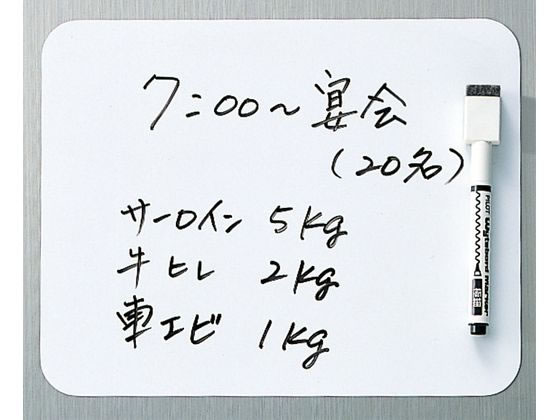 7:00～宴会
(20名)
サーロイン 5kg
牛ヒレ 2kg
車エビ 1kg
PILOT Whiteboard Marker